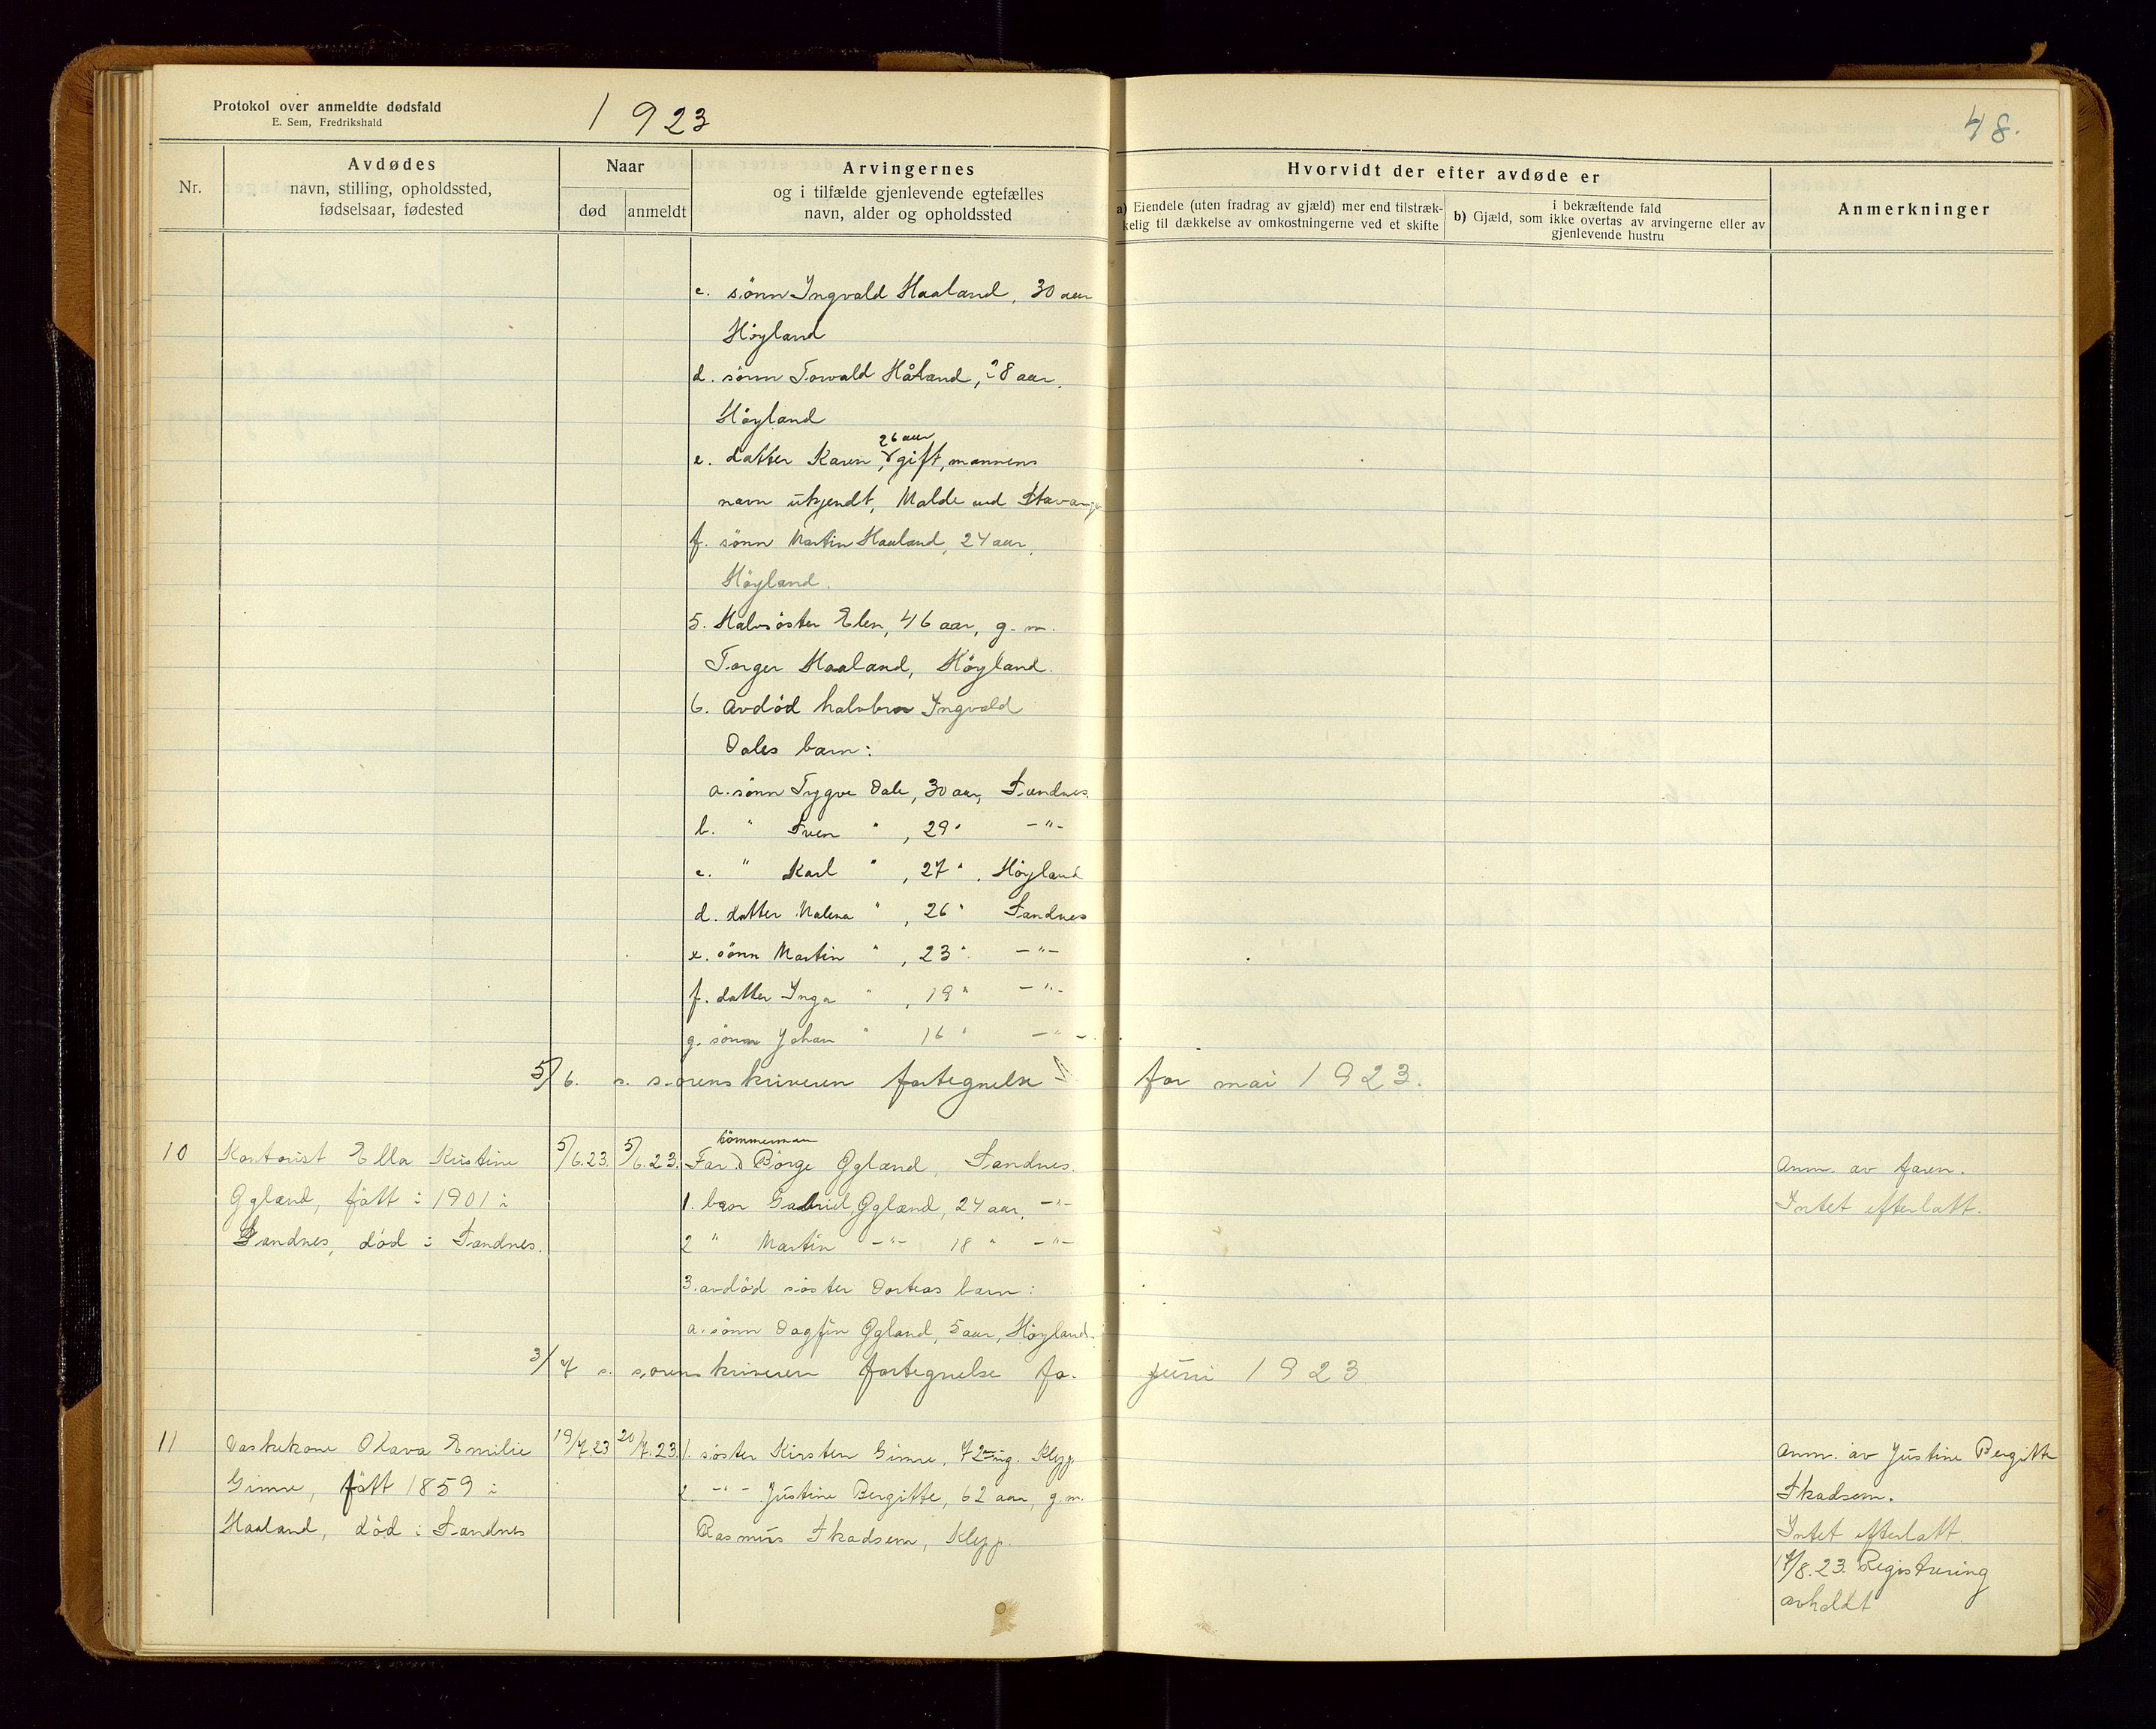 Protokol over anmeldte dødsfald
E. Sem, Fredrikshald
1923
48.
Nr.
Avdødes
navn, stilling, opholdssted,
fødselsaar, fødested
Naar
død
anmeldt
Arvingernes
og i tilfælde gjenlevende egtefælles
navn, alder og opholdssted
Hvorvidt der efter avdøde er
a) Eiendele (uten fradrag av gjæld) mer end tilstræk-
kelig til dækkelse av omkostningerne ved et skifte
i bekræftende fald
b) Gjæld, som ikke overtas av arvingerne eller av
gjenlevende hustru
Anmerkninger
c. sönn Ingvald Haaland, 30 aar
Höyland
d. sönn Torvald Håland, 28 aar,
Höyland
26 aar
e. datter Karen, gift, mannens
navn ukjendt, Malde ved Stavanger
f. sönn Martin Haaland, 24 aar,
Höyland.
5. Halvsöster Elen, 46 aar, g. m.
Torger Haaland, Höyland.
6. Avdöd halvbror Ingvald
Dales barn:
a. sönn Trygve Dale, 30 aar, Sandnes.
b. " Sven " , 29 " -"-
c. " Karl " , 27 " , Höyland
d. datter Malena " , 26 " Sandnes
e. sönn Martin " , 23 " -"-
f. datter Inga " , 19 " -"-
g. sönn Johan " 16 " -"-
5/6. s. sorenskriveren fortegnelse for mai 1923.
10 Kontorist Ella Kristine 5/6.23. 5/6.23. Far Börge Ogland, Sandnes. Anm. av faren.
tömmerman
Ogland, fött i 1901 i 1. bror Gabriel Ogland, 24 aar, -"- Intet efterlatt.
Sandnes, död i Sandnes. 2 " Martin -"- 18 " -"-
3. avdöd söster Dorteas barn:
a. sönn Dagfin Ogland, 5 aar, Höyland.
3/7 s. sorenskriveren fortegnelse for juni 1923
11 Vaskekone Olava Emilie 19/7.23 20/7.23. 1. söster Kirsten Gimre, 72 aar ug. Klepp. Anm. av Justine Bergitte
Gimre, fött 1859 i 2. -"- Justine Bergitte, 62 aar, g. m. Skadsem.
Haaland, död i Sandnes Rasmus Skadsem, Klepp. Intet efterlatt.
17/8.23. Registrering
avholdt